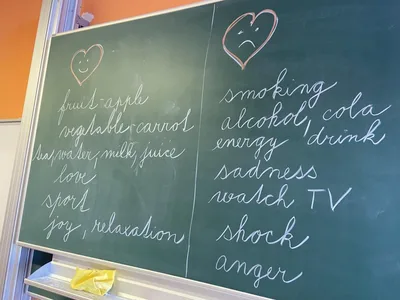 fruit-apple
vegetable-carrot
tea, water, milk, juice
love
sport
joy, relaxation
smoking
alcohol, cola
energy drink
sadness
watch TV
shock
anger